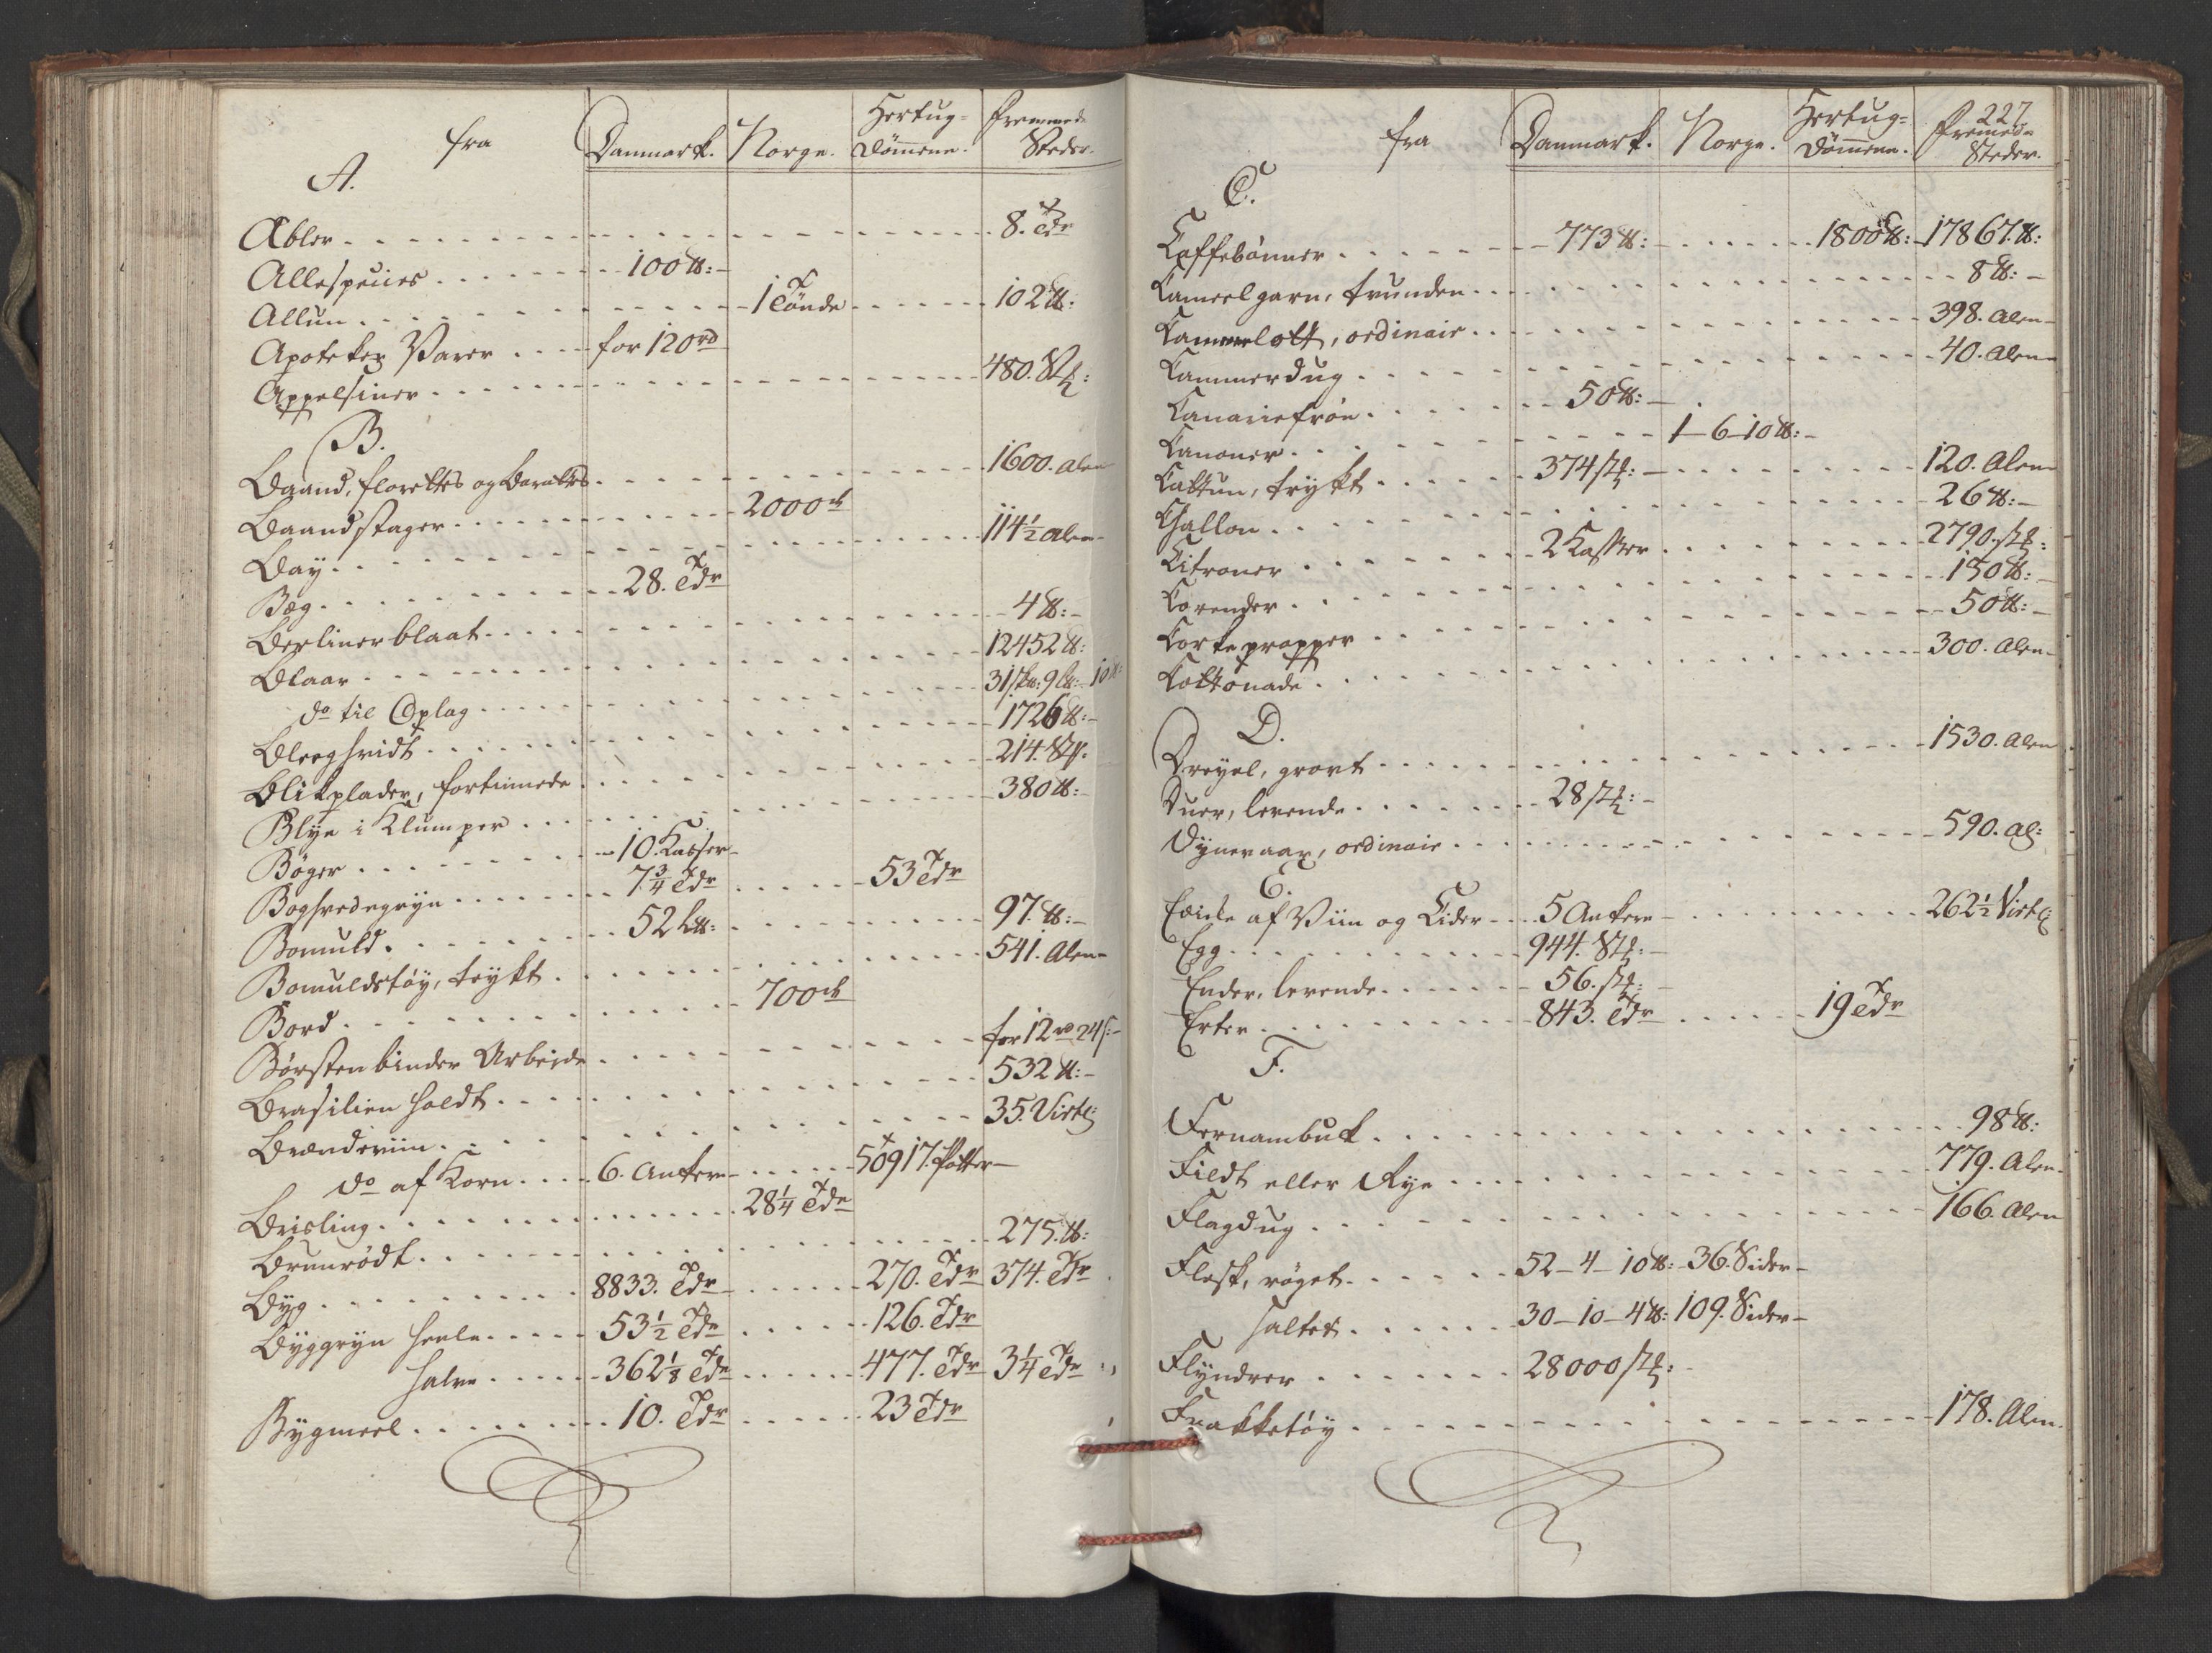 fra Danmark. Norge. Hertug= Dömmene. fremmede Steder.
A.
Æbler 8. Tdr
Allespeçies 100 ℔:
Allun 1 Tönde 102 ℔:
Apoteker Varer for 120 rd
Appelsiner 480. Stk:
B.
Baand, florettes og Barattes 1600. Alen
Baandstager 2000 st
Bay 114½ Alen
Bæg 28. Tdr
Berlinerblaat 4 ℔:
Blaar 12452 ℔:
do til Oplag 31 sk℔: 9 L℔: 10 ℔:
Bleeghvidt 1726 ℔:
Blikplader, fortinnede 214. Stk.
Blye i Klumper 380 ℔:
Böger 10. Kasser
Boghvedegryn 7¾ Tdr 53 Tdr
Bomuld 52 L℔: 97. ℔:
Bomuldstöy, trykt 541. Alen
Bord 700 st
Börstenbinder Arbeide for 12 rd 24 s:
Brasilien Holdt 532 ℔:
Brændeviin 35. Virtl:
do af Korn 6. Ankere 50917. Potter
Brisling 28¼ Tdr
Brunrödt 275. ℔:
Byg 8833. Tdr 270. Tdr 374. Tdr
Byggryn heele 53½ Tdr 126. Tdr
halve 362⅛ Tdr 477. Tdr 3¼ Tdr
Bygmeel 10. Tdr 23 Tdr
227
fra Danmark. Norge. Hertug= Dömmene. fremede Steder.
C.
Caffebönner 773 ℔: 1800 ℔: 17867. ℔:
Cameelgarn, tvunden 8 ℔:
Cammelott, ordinair 398. Alen
Cammerdug 40. Alen
Canariefröe 50 ℔:
Canoner 1-6-10 ℔:
Cattun, trykt 374 stk: 120. Alen
Challon 26 ℔:
Citroner 2 Kasser 2790. stk:
Corender 150 ℔:
Corkepropper 50 ℔:
Cottonade 300. Alen
D.
Dreyel, grovt 1530. Alen
Duer, levende 28 stk:
Dynevaar, ordinair 590. Al:
E.
Edicke af Viin og Cider 5 Ankere 262½ Virtl:
Egg 944. Stk:
Ender, levende 56. stk:
Erter 843. Tdr 19 Tdr
F.
Fernambuck 98 ℔:
Fildt eller Rye 779. Alen
Flagdug 166. Alen
Flesk, röget 52-4-10 ℔: 36. Sider
saltet 30-10-4 ℔: 109. Sider
Flyndrer 28000 stk:
Frakketöy 178. Alen